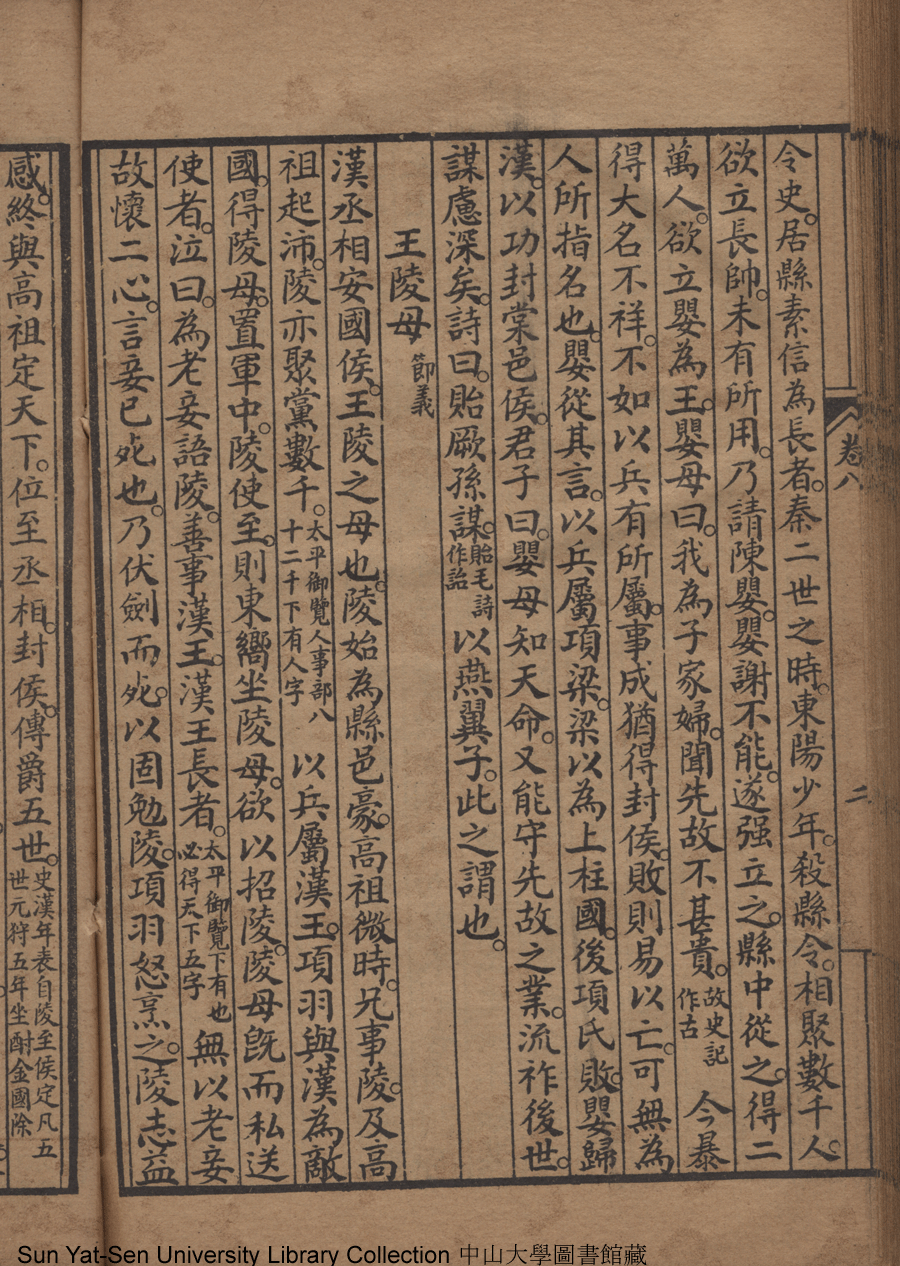 令史。居縣素信為長者。秦二世之時。東陽少年。殺縣令。相聚數千人。
欲立長帥。未有所用。乃請陳嬰。嬰謝不能。遂强立之。縣中從之。得二
萬人。欲立嬰為王。嬰母曰。我為子家婦。聞先故不甚貴。故史記作古今暴
得大名不祥。不如以兵有所屬。事成猶得封侯。敗則易以亡。可無為
人所指名也。嬰從其言。以兵屬項梁。梁以為上柱國。後項氏敗。嬰歸
漢。以功封棠邑侯。君子曰。嬰母知天命。又能守先故之業。流祚後世。
謀慮深矣。詩曰。貽厥孫謀。貽毛詩作詒以燕翼子。此之謂也。
王陵母節義
漢丞相安國侯。王陵之母也。陵始為縣邑豪。高祖微時。兄事陵。及高
祖起沛。陵亦聚黨數千。太平御覽人事部八十二千下有人字以兵屬漢王。項羽與漢為敵
國。得陵母。置軍中。陵使至。則東嚮坐陵母。欲以招陵。陵母既而私送
使者。泣曰。為老妾語陵。善事漢王。漢王長者。太平御覽下有也必得天下五字無以老妾
故懷二心。言妾已死也。乃伏劍而死。以固勉陵。項羽怒烹之。陵志益
感。終與高祖定天下。位至丞相。封侯。傳爵五世。史漢年表自陵至侯定凡五世元狩五年坐酎金國除
卷八
二
Sun Yat-Sen University Library Collection 中山大學圖書館藏